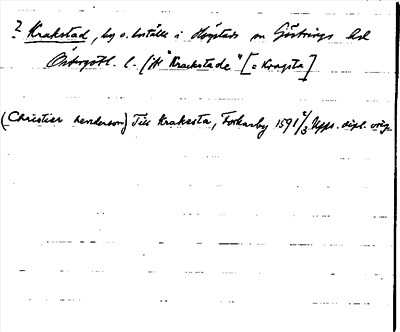 ? Krakstad, by o. boställe i Högstads sn Göstrings hd
Östergötl. l. (A "Krackstade" [= Kragsta]
(Christier henderson) Till Krakesta, Forkarby 1591 2/3 Upps. dipl. orig.